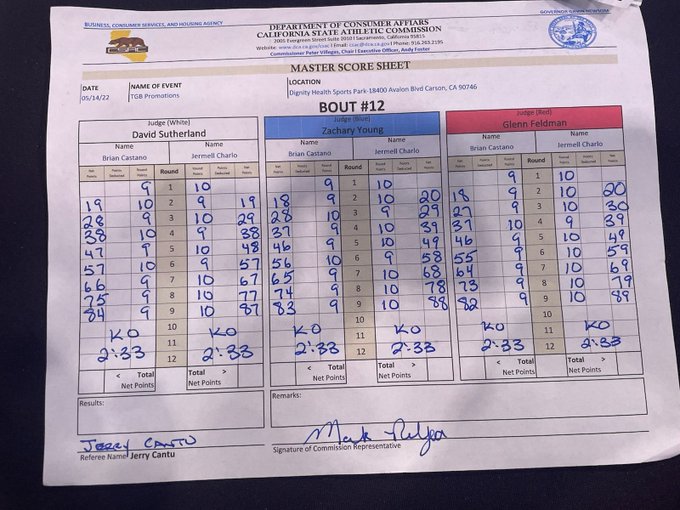 BUSINESS, CONSUMER SERVICES, AND HOUSING AGENCY GOVERNOR GAVIN NEWSOM
DEPARTMENT OF CONSUMER AFFAIRS
CALIFORNIA STATE ATHLETIC COMMISSION
2005 Evergreen Street Suite 2010 | Sacramento, California 95815
Website: www.dca.ca.gov/csac | Email: csac@dca.ca.gov | Phone: 916.263.2195
Commissioner Peter Villegas, Chair | Executive Officer, Andy Foster
MASTER SCORE SHEET
DATE NAME OF EVENT LOCATION
05/14/22 TGB Promotions Dignity Health Sports Park-18400 Avalon Blvd Carson, CA 90746
BOUT #12
Judge (White) Judge (Blue) Judge (Red)
David Sutherland Zachary Young Glenn Feldman
Name Name Name Name Name Name
Brian Castano Jermell Charlo Brian Castano Jermell Charlo Brian Castano Jermell Charlo
Net Points Points Deducted Round Points Round Round Points Points Deducted Net Points Net Points Points Deducted Round Points Round Round Points Points Deducted Net Points Net Points Points Deducted Round Points Round Round Points Points Deducted Net Points
9 1 10 9 1 10 9 1 10
19 10 2 9 19 18 9 2 10 20 18 9 2 10 20
28 9 3 10 29 28 10 3 9 29 27 9 3 10 30
38 10 4 9 38 37 9 4 10 39 37 10 4 9 39
47 9 5 10 48 46 9 5 10 49 46 9 5 10 49
57 10 6 9 57 56 10 6 9 58 55 9 6 10 59
66 9 7 10 67 65 9 7 10 68 64 9 7 10 69
75 9 8 10 77 74 9 8 10 78 73 9 8 10 79
84 9 9 10 87 83 9 9 10 88 82 9 9 10 89
KO 10 KO KO 10 KO KO 10 KO
2:33 11 2:33 2:33 11 2:33 2:33 11 2:33
12 12 12
< Total Total > < Total Total > < Total Total >
Net Points Net Points Net Points Net Points Net Points Net Points
Results: Remarks:
JERRY CANTU
Referee Name Jerry Cantu Signature of Commission Representative